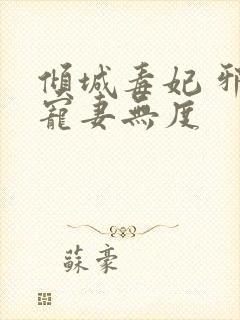 傾城毒妃 邪
寵妻無度
蘇豪